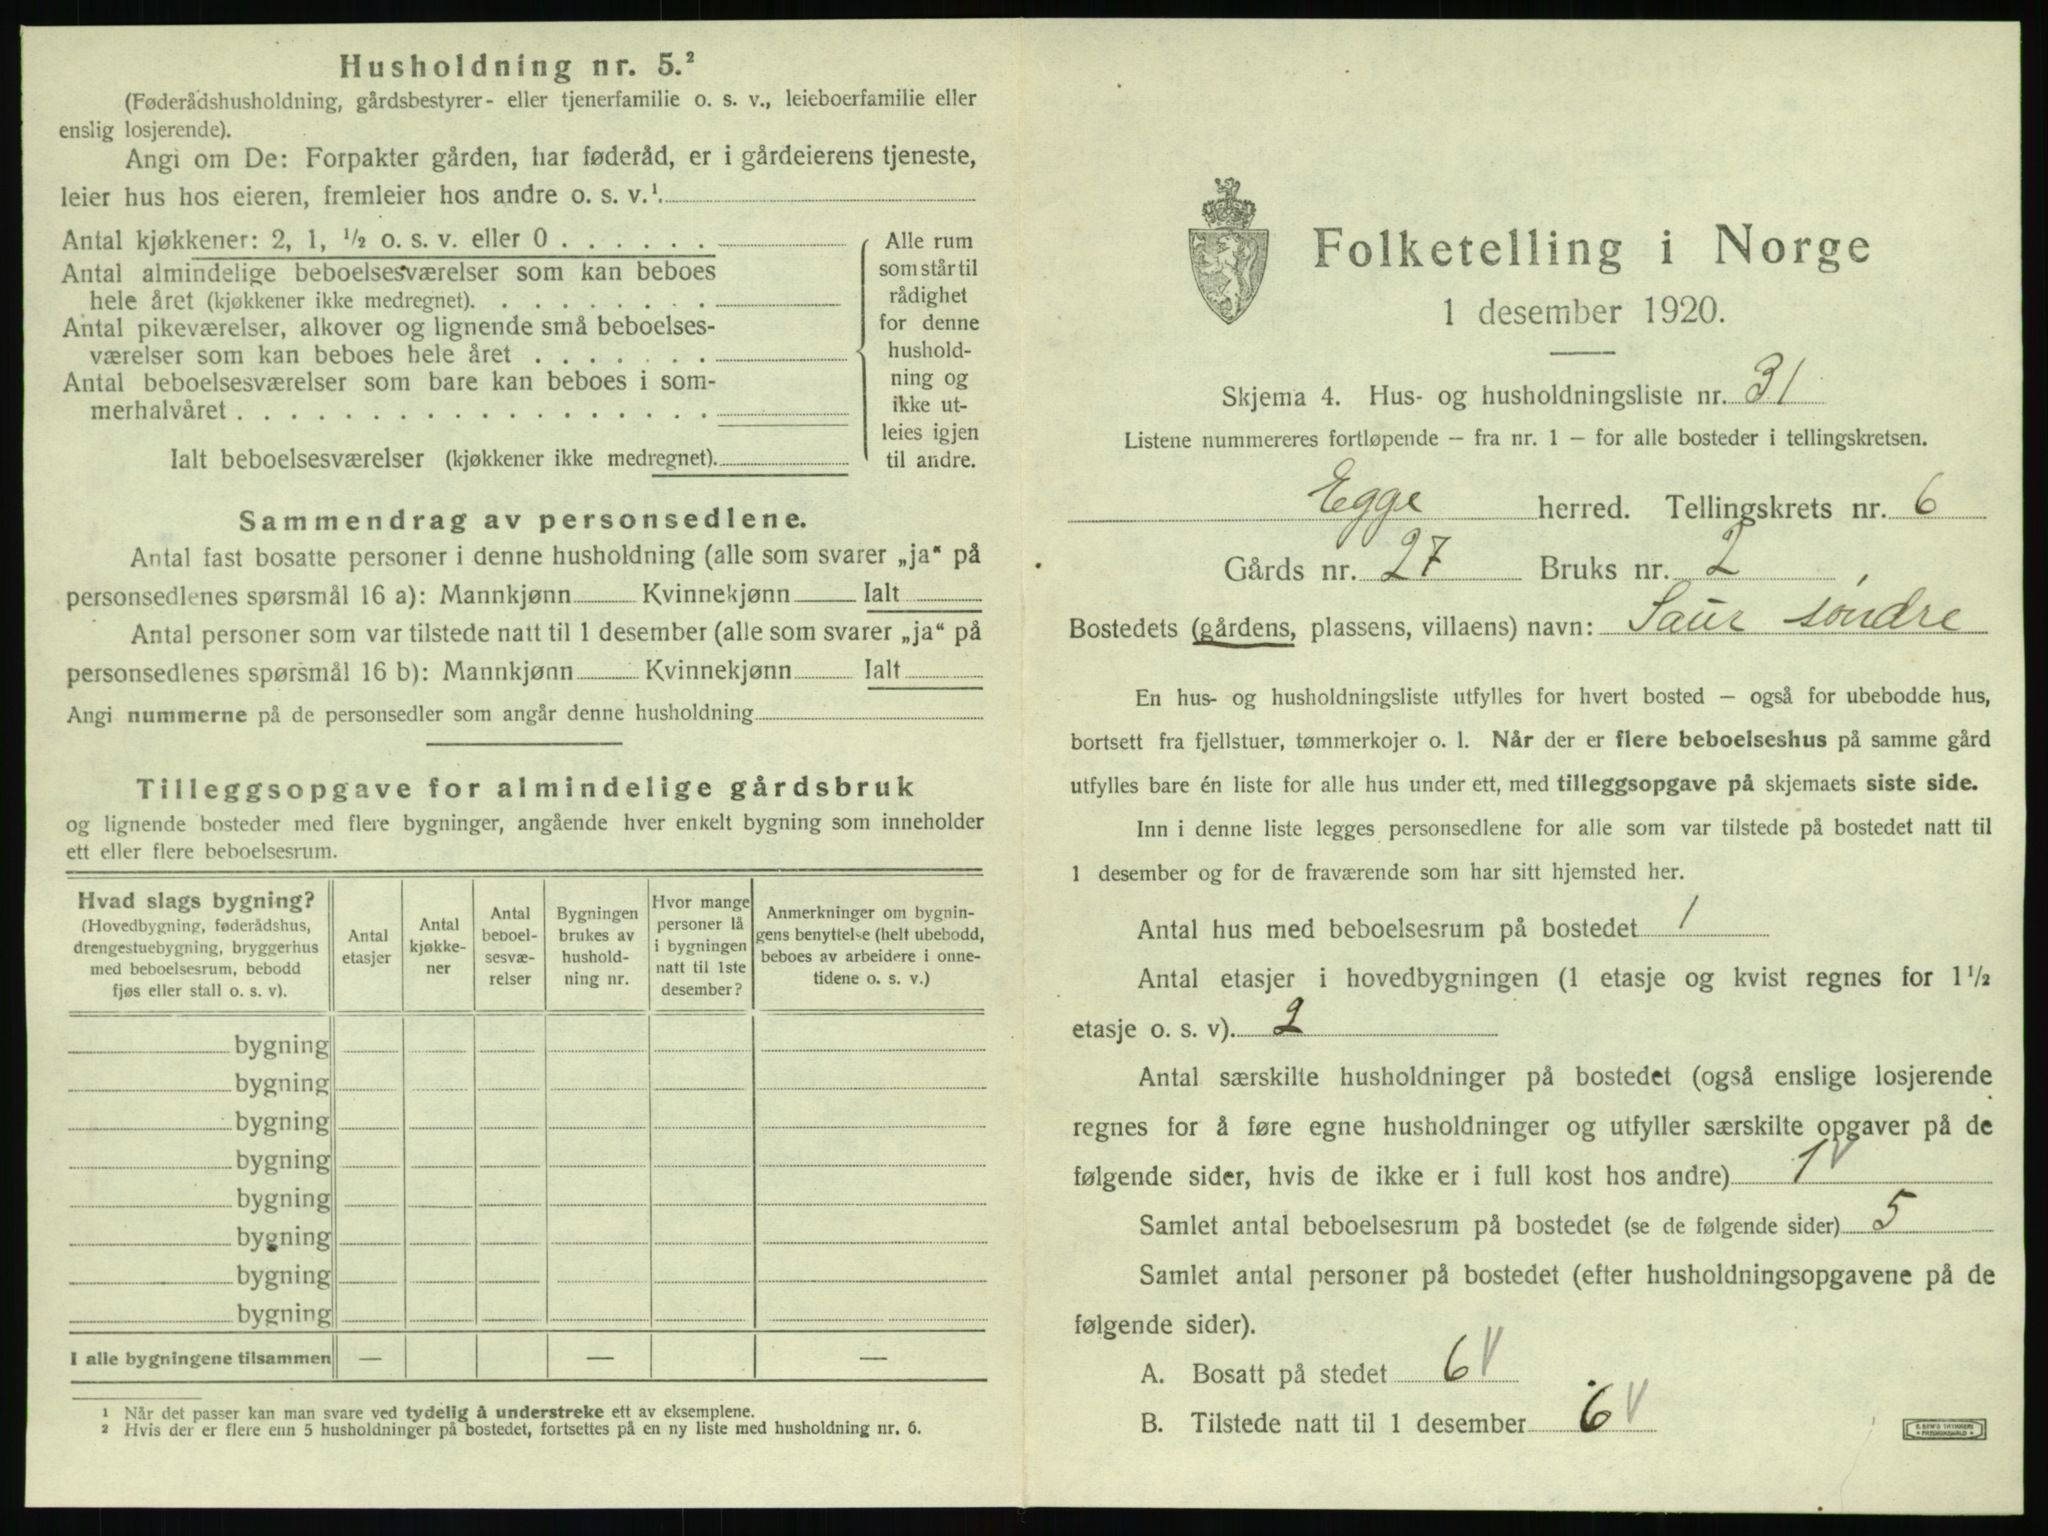 Husholdning nr. 5.²
(Føderådshusholdning, gårdsbestyrer- eller tjenerfamilie o. s. v., leieboerfamilie eller
enslig losjerende).
Angi om De: Forpakter gården, har føderåd, er i gårdeierens tjeneste,
leier hus hos eieren, fremleier hos andre o. s. v.¹
Antal kjøkkener: 2, 1, ½ o. s. v. eller 0 . . . . . .
Antal almindelige beboelsesværelser som kan beboes
hele året (kjøkkener ikke medregnet). . . . . . . . .
Antal pikeværelser, alkover og lignende små beboelses-
værelser som kan beboes hele året . . . . . . .
Antal beboelsesværelser som bare kan beboes i som-
merhalvåret . . . . . . . . . . . . . . . . . .
Ialt beboelsesværelser (kjøkkener ikke medregnet).
Alle rum
som står til
rådighet
for denne
hushold-
ning og
ikke ut-
leies igjen
til andre.
Sammendrag av personsedlene.
Antal fast bosatte personer i denne husholdning (alle som svarer „ja“ på
personsedlenes spørsmål 16 a): Mannkjønn Kvinnekjønn Ialt
Antal personer som var tilstede natt til 1 desember (alle som svarer „ja“ på
personsedlenes spørsmål 16 b): Mannkjønn Kvinnekjønn Ialt
Angi nummerne på de personsedler som angår denne husholdning
Tilleggsopgave for almindelige gårdsbruk
og lignende bosteder med flere bygninger, angående hver enkelt bygning som inneholder
ett eller flere beboelsesrum.
Hvad slags bygning?
(Hovedbygning, føderådshus,
drengestuebygning, bryggerhus
med beboelsesrum, bebodd
fjøs eller stall o. s. v).
Antal
etasjer
Antal
kjøkke-
ner
Antal
beboel-
sesvæ-
relser
Bygningen
brukes av
hushold-
ning nr.
Hvor mange
personer lå
i bygningen
natt til 1ste
desember?
Anmerkninger om bygnin-
gens benyttelse (helt ubebodd,
beboes av arbeidere i onne-
tidene o. s. v.)
bygning
bygning
bygning
bygning
bygning
bygning
bygning
bygning
I alle bygningene tilsammen — — —
¹ Når det passer kan man svare ved tydelig å understreke ett av eksemplene.
² Hvis der er flere enn 5 husholdninger på bostedet, fortsettes på en ny liste med husholdning nr. 6.
Folketelling i Norge
1 desember 1920.
Skjema 4. Hus- og husholdningsliste nr. 31
Listene nummereres fortløpende – fra nr. 1 – for alle bosteder i tellingskretsen.
Egge herred. Tellingskrets nr. 6
Gårds nr. 27 Bruks nr. 2
Bostedets (gårdens, plassens, villaens) navn: Saur søndre
En hus- og husholdningsliste utfylles for hvert bosted – også for ubebodde hus,
bortsett fra fjellstuer, tømmerkojer o. l. Når der er flere beboelseshus på samme gård
utfylles bare én liste for alle hus under ett, med tilleggsopgave på skjemaets siste side.
Inn i denne liste legges personsedlene for alle som var tilstede på bostedet natt til
1 desember og for de fraværende som har sitt hjemsted her.
Antal hus med beboelsesrum på bostedet 1
Antal etasjer i hovedbygningen (1 etasje og kvist regnes for 1½
etasje o. s. v). 2
Antal særskilte husholdninger på bostedet (også enslige losjerende
regnes for å føre egne husholdninger og utfyller særskilte opgaver på de
følgende sider, hvis de ikke er i full kost hos andre) 1
Samlet antal beboelsesrum på bostedet (se de følgende sider) 5
Samlet antal personer på bostedet (efter husholdningsopgavene på de
følgende sider).
A. Bosatt på stedet 6
B. Tilstede natt til 1 desember 6